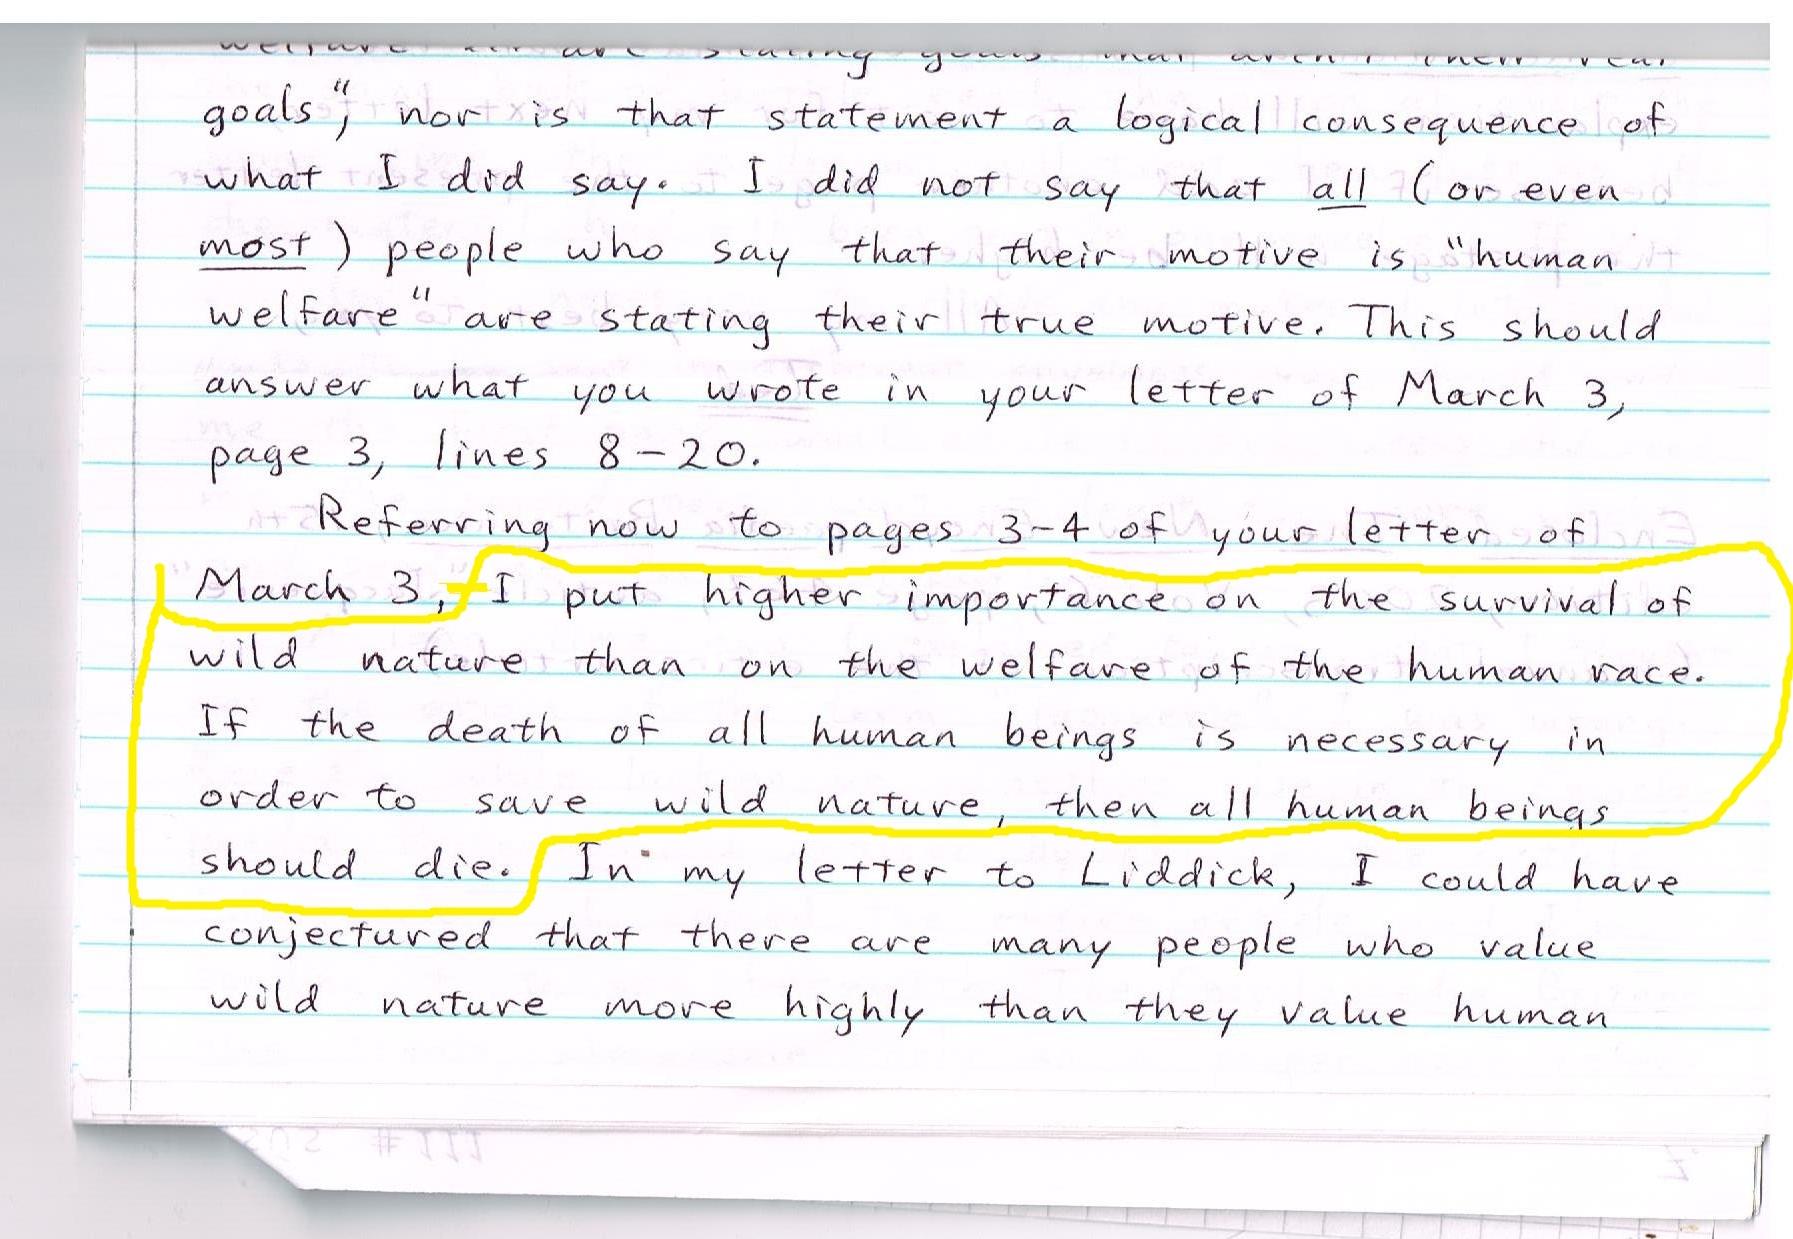 goals", nor is that statement a logical consequence of
what I did say. I did not say that all (or even
most) people who say that their motive is "human
welfare" are stating their true motive. This should
answer what you wrote in your letter of March 3,
page 3, lines 8-20.
Referring now to pages 3-4 of your letter of
March 3, I put higher importance on the survival of
wild nature than on the welfare of the human race.
If the death of all human beings is necessary in
order to save wild nature, then all human beings
should die. In my letter to Liddick, I could have
conjectured that there are many people who value
wild nature more highly than they value human